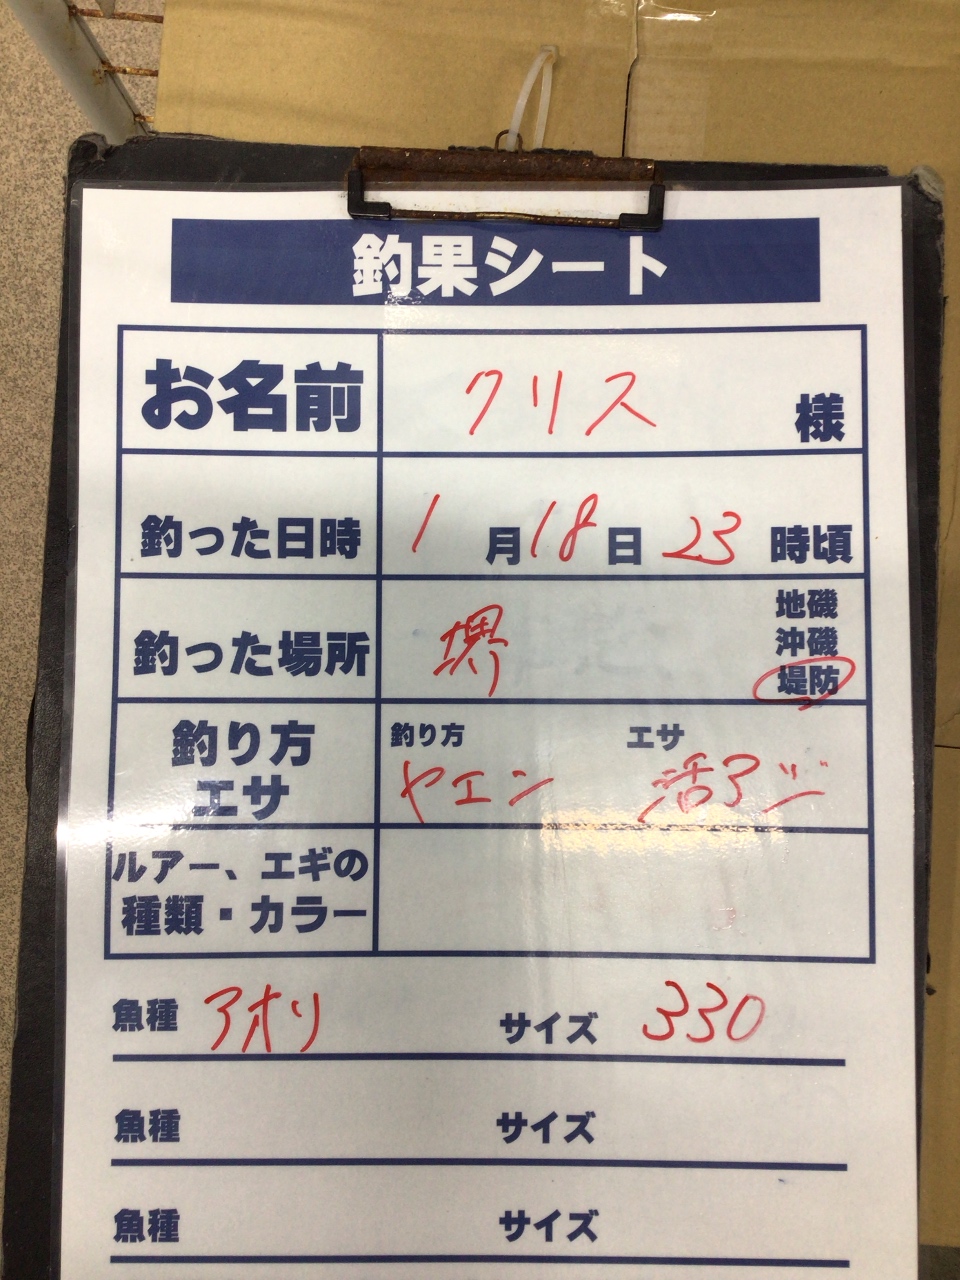 釣果シート
お名前 クリス 様
釣った日時 1月18日23時頃
釣った場所 堺 地磯 沖磯 堤防
釣り方 エサ 釣り方 ヤエン エサ 活アジ
ルアー、エギの種類・カラー
魚種 アオリ サイズ 330
魚種 サイズ
魚種 サイズ